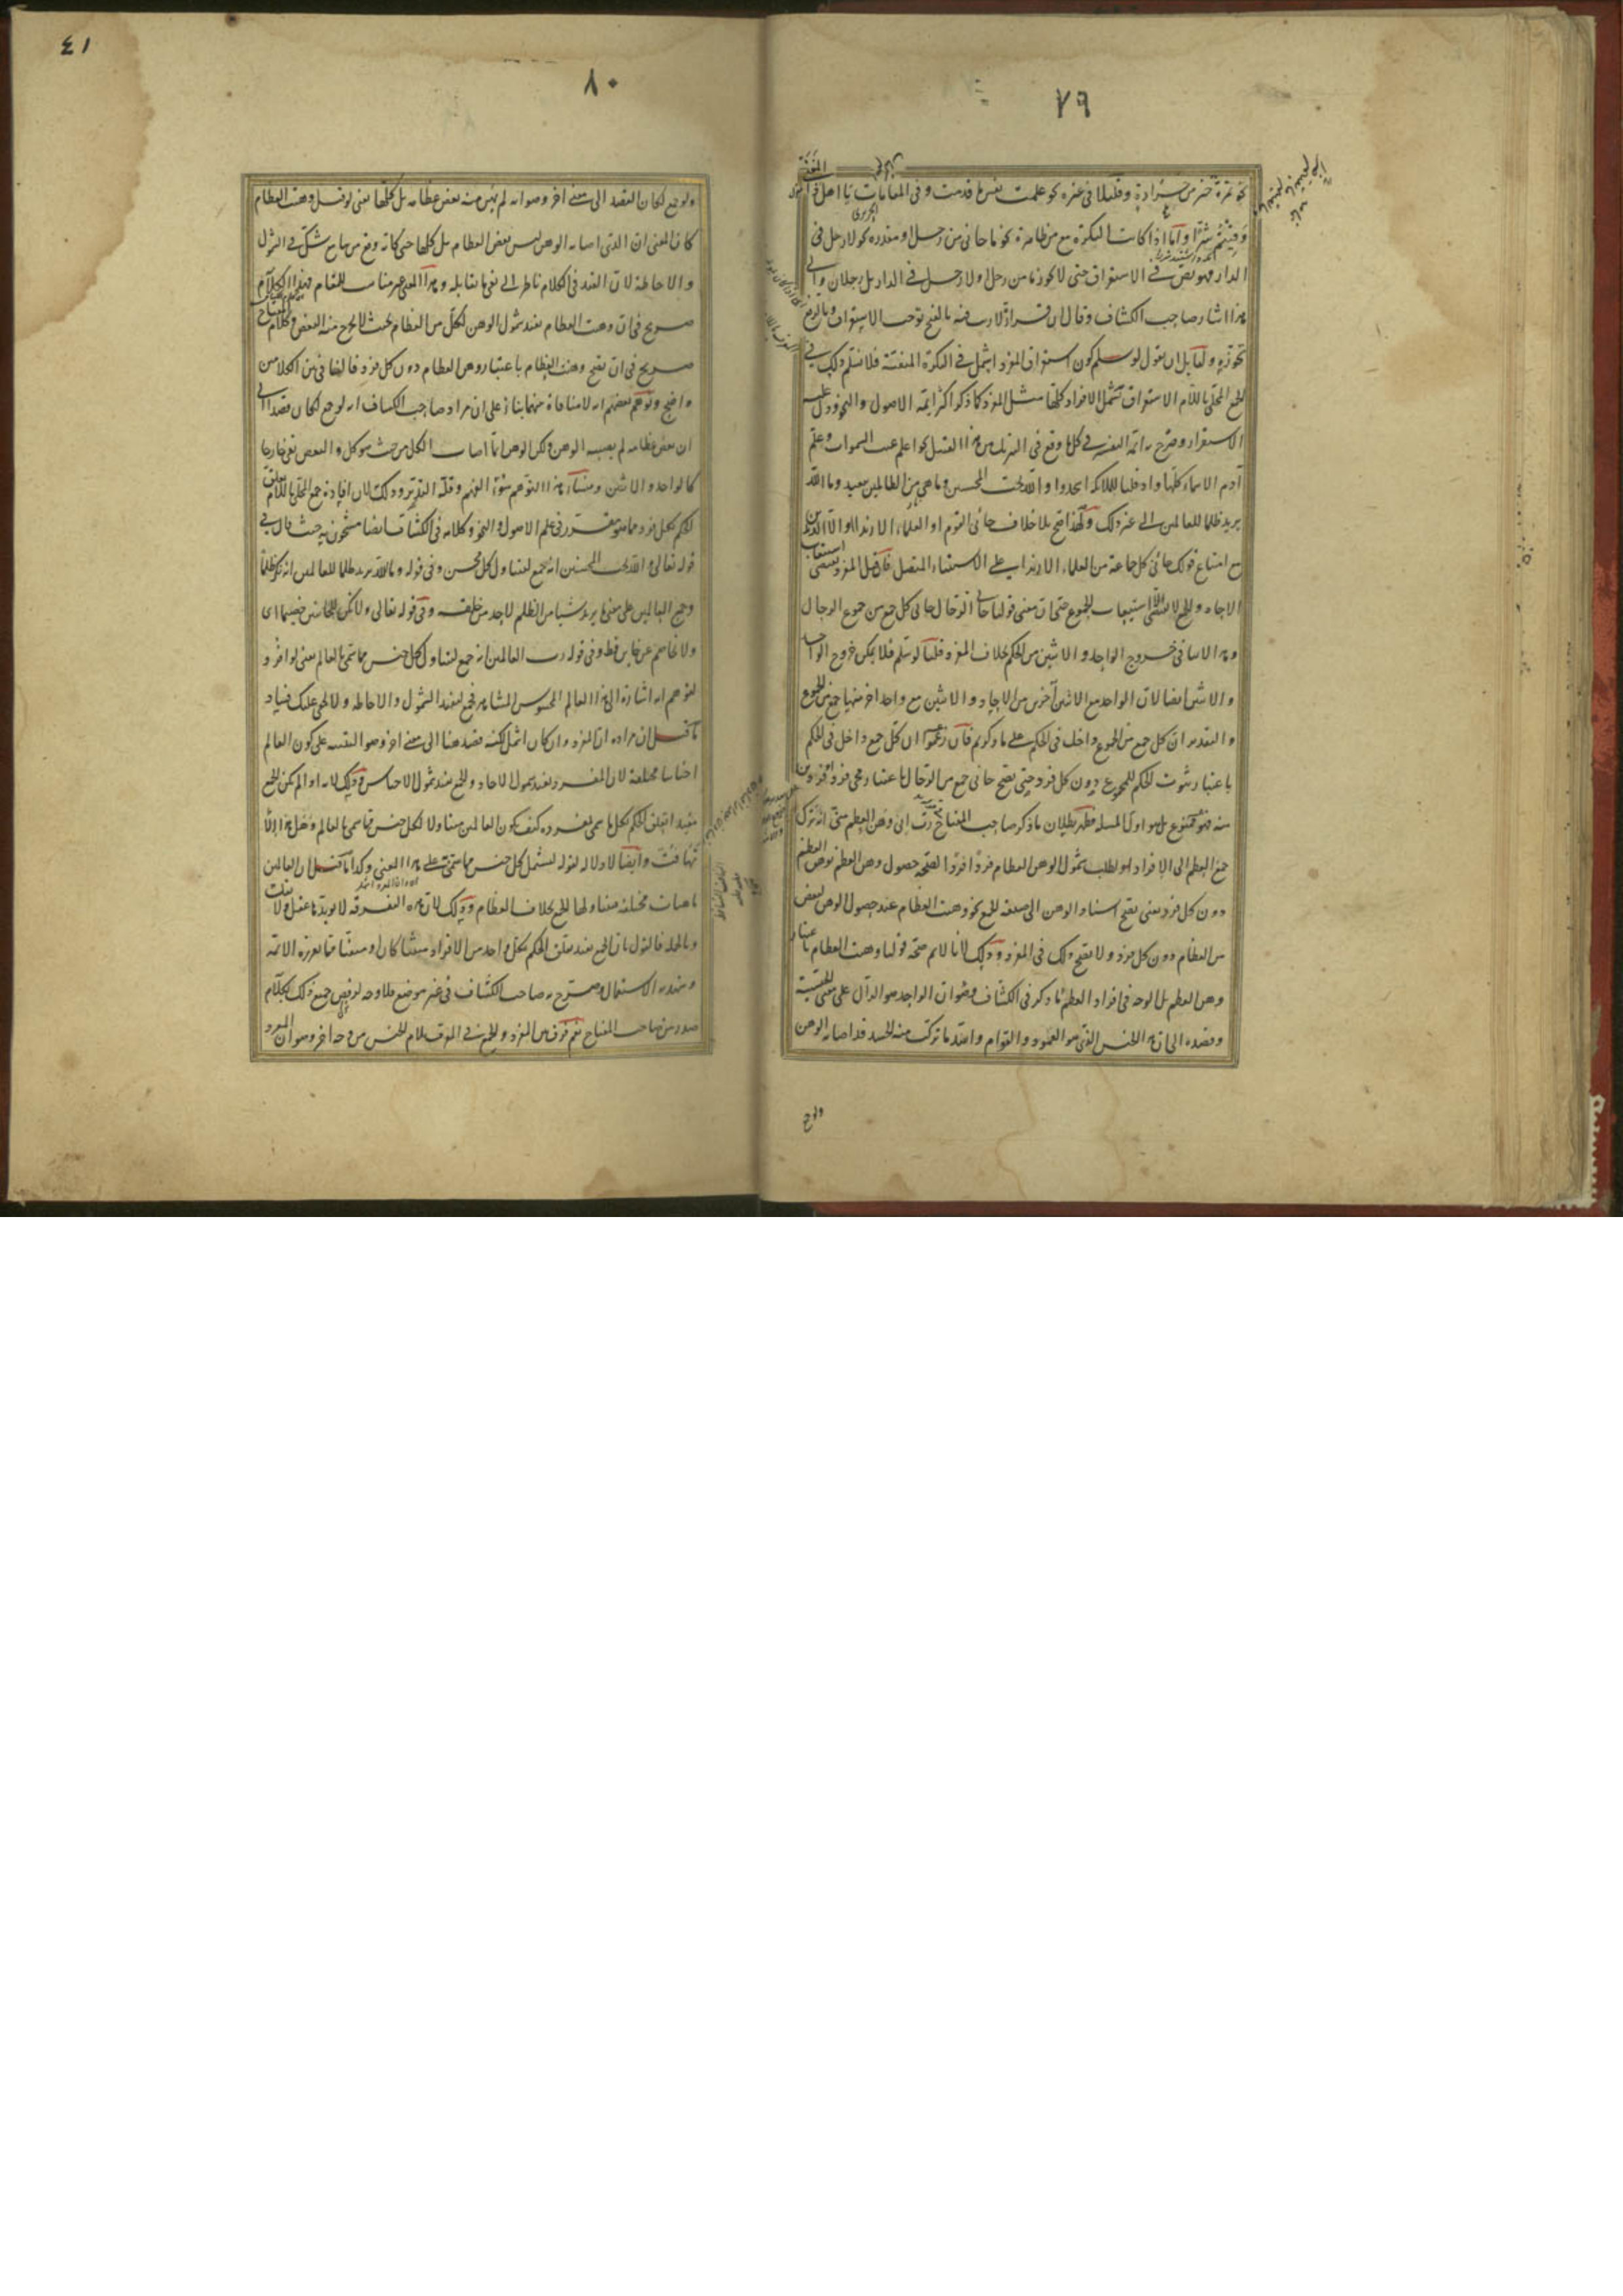 ٧٩
نحو تمرة خير من جرادة وقليلا في غيره نحو علمت نفس ما قدمت وفي المقامات يا اهل ذا المغنى
وقيتم شرا واما اذا كانت النكرة مع من ظاهرة نحو ما جاءني من رجل او مقدرة نحو لا رجل في
الدار فهو نص في الاستغراق حتى لا يجوز ما من رجل ولا رجل في الدار بل رجلان والى
هذا اشار صاحب الكشاف وقال ان قراءة لا ريب فيه بالفتح توجب الاستغراق وبالرفع
تجوزه ولقائل ان يقول لو سلم كون استغراق المفرد اشمل في النكرة المنفية فلا نسلم ذلك في
الجمع المحلى باللام الاستغراق تشمل الافراد كلها مثل المفرد كما ذكر اكثر ائمة الاصول والنحو ودل عليه
الاستقراء وصرح به ائمة التفسير في كل ما وقع في التنزيل من هذا القبيل نحو اعلم غيب السموات وعلم
آدم الاسماء كلها واذ قلنا للملائكة اسجدوا والله يحب المحسنين وما هي من الظالمين ببعيد وما الله
يريد ظلما للعالمين الى غير ذلك ولهذا صح بلا خلاف جاءني القوم او العلماء الا زيدا او الا الزيدين
مع امتناع قولك جاءني كل جماعة من العلماء الا زيدا على الاستثناء المتصل فان قيل المفرد يقتضي استيعاب
الاحاد والجمع لا يقتضي الا استيعاب الجموع حتى ان معنى قولنا جاءني الرجال جاءني كل جمع من جموع الرجال
وهذا لا ينافي خروج الواحد والاثنين من الحكم بخلاف المفرد قلنا لو سلم فلا يمكن خروج الواحد
والاثنين ايضا لان الواحد مع الاثنين آخرين من الاحاد والاثنين مع واحد اخر منها جمع من الجموع
والتقدير ان كل جمع من الجموع داخل في الحكم على ما ذكرتم فان زعموا ان كل جمع داخل في الحكم
باعتبار ثبوت الحكم للمجموع دون كل فرد حتى يصح جاءني جمع من الرجال باعتبار مجيء فرد او فردين
منه فهو ممنوع بل هو اول المسئلة فظهر بطلان ما ذكر صاحب المفتاح في رب اني وهن العظم مني انه ترك
جمع العظم الى الافراد لطلب شمول الوهن العظام فردا فردا لصحة حصول وهن العظم بوهن البعض
دون كل فرد يعني يصح اسناد الوهن الى صيغة الجمع نحو وهنت العظام عند حصول الوهن لبعض
من العظام دون كل فرد ولا يصح ذلك في المفرد وذلك لانا لا نسلم صحة قولنا وهنت العظام باعتبار
وهن العظم بل الوجه في افراد العظم ما ذكر في الكشاف وهو ان الواحد هو الدال على معنى الجنسية
وقصده الى ان هذا الجنس الذي هو العمود والقوام واشد ما تركب منه الجسد قد اصابه الوهن
ولو جمع
٤١
٨٠
ولو جمع لكان القصد الى معنى اخر وهو انه لم يهن منه بعض عظامه بل كلها يعني لو قيل وهنت العظام
كان المعنى ان الذي اصابه الوهن ليس بعض العظام بل كلها حتى كانه وقع من سامع شك في الشمول
والاحاطة لان القيد في الكلام ناظر الى نفي ما يقابله وهذا المعنى غير مناسب للمقام فهذا الكلام
صريح في ان وهنت العظام يفيد شمول الوهن لكل من العظام بحيث لا يخرج منه البعض وكلام المفتاح
صريح في ان يصح وهنت العظام باعتبار وهن العظام دون كل فرد فالتنافي بين الكلامين
واضح وتوهم بعضهم انه لا منافاة بينهما بناء على ان مراد صاحب الكشاف انه لو جمع لكان قصدا الى
ان بعض عظامه لم يصبه الوهن ولكن الوهن انما اصاب الكل من حيث هو كل والبعض بقي خارجا
كالواحد والاثنين ومنشأ هذا التوهم سوء الفهم وقلة التدبر وذلك لان افادة جمع المحلى باللام تعلق
الحكم بكل فرد مما هو مقرر في علم الاصول والنحو وكلامه في الكشاف ايضا مشحون به حيث قال في
قوله تعالى والله يحب المحسنين انه جمع ليتناول كل محسن وفي قوله وما الله يريد ظلما للعالمين انه نكر ظلما
وجمع العالمين على معنى ما يريد شيئا من الظلم لاحد من خلقه وفي قوله تعالى ولا تكن للخائنين خصيما اي
ولا تخاصم عن خاين قط وفي قوله رب العالمين انه جمع ليتناول كل جنس مما سمي بالعالم يعني لو افرد
لتوهم انه اشارة الى هذا العالم المحسوس المشاهد فجمع ليفيد الشمول والاحاطة ولا يخفى عليك فساد
ما قيل ان مراده ان المفرد وان كان اشمل لكنه قصد هنا الى معنى اخر وهو التنبيه على كون العالم
اجناسا مختلفة لان المفرد يفيد شمول الاحاد والجمع يفيد شمول الاجناس وذلك لانه اذا لم يكن الجمع
مفيدا تعلق الحكم بكل ما سمي بمفرده كيف يكون العالمين متناولا لكل جنس مما سمي بالعالم وهل هذا الا
تهافت وايضا لا دلالة لقوله ليشمل كل جنس مما سمي به على هذا المعنى وكذا ما قيل ان العالمين
ماهيات مختلفة متناولها الجمع بخلاف العظام وذلك لان هذه التفرقة لا يؤيدها عقل ولا نقل
وبالجملة فالقول بان الجمع يفيد تعلق الحكم بكل واحد من الافراد مثبتا كان او منفيا مما يقرره الائمة
وشهد به الاستعمال وصرح به صاحب الكشاف في غير موضع فلا وجه لرفض جميع ذلك بكلام
صدر من صاحب المفتاح نعم فرق بين المفرد والجمع في المعرف بلام الجنس من وجه اخر وهو ان المفرد